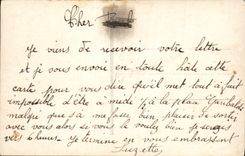 Cher
Je viens de recevoir votre lettre
et je vous envoi en toute hâte cette
carte pour vous dire qu'il met tout à fait
impossible d'être à médi ½ à la place Garibaldi
malgré que sa me fasse bien plaisir de sortir
avec vous alors se vous le voulez bien je serais
vers heures. Je termine en vous embrassant
Suzette